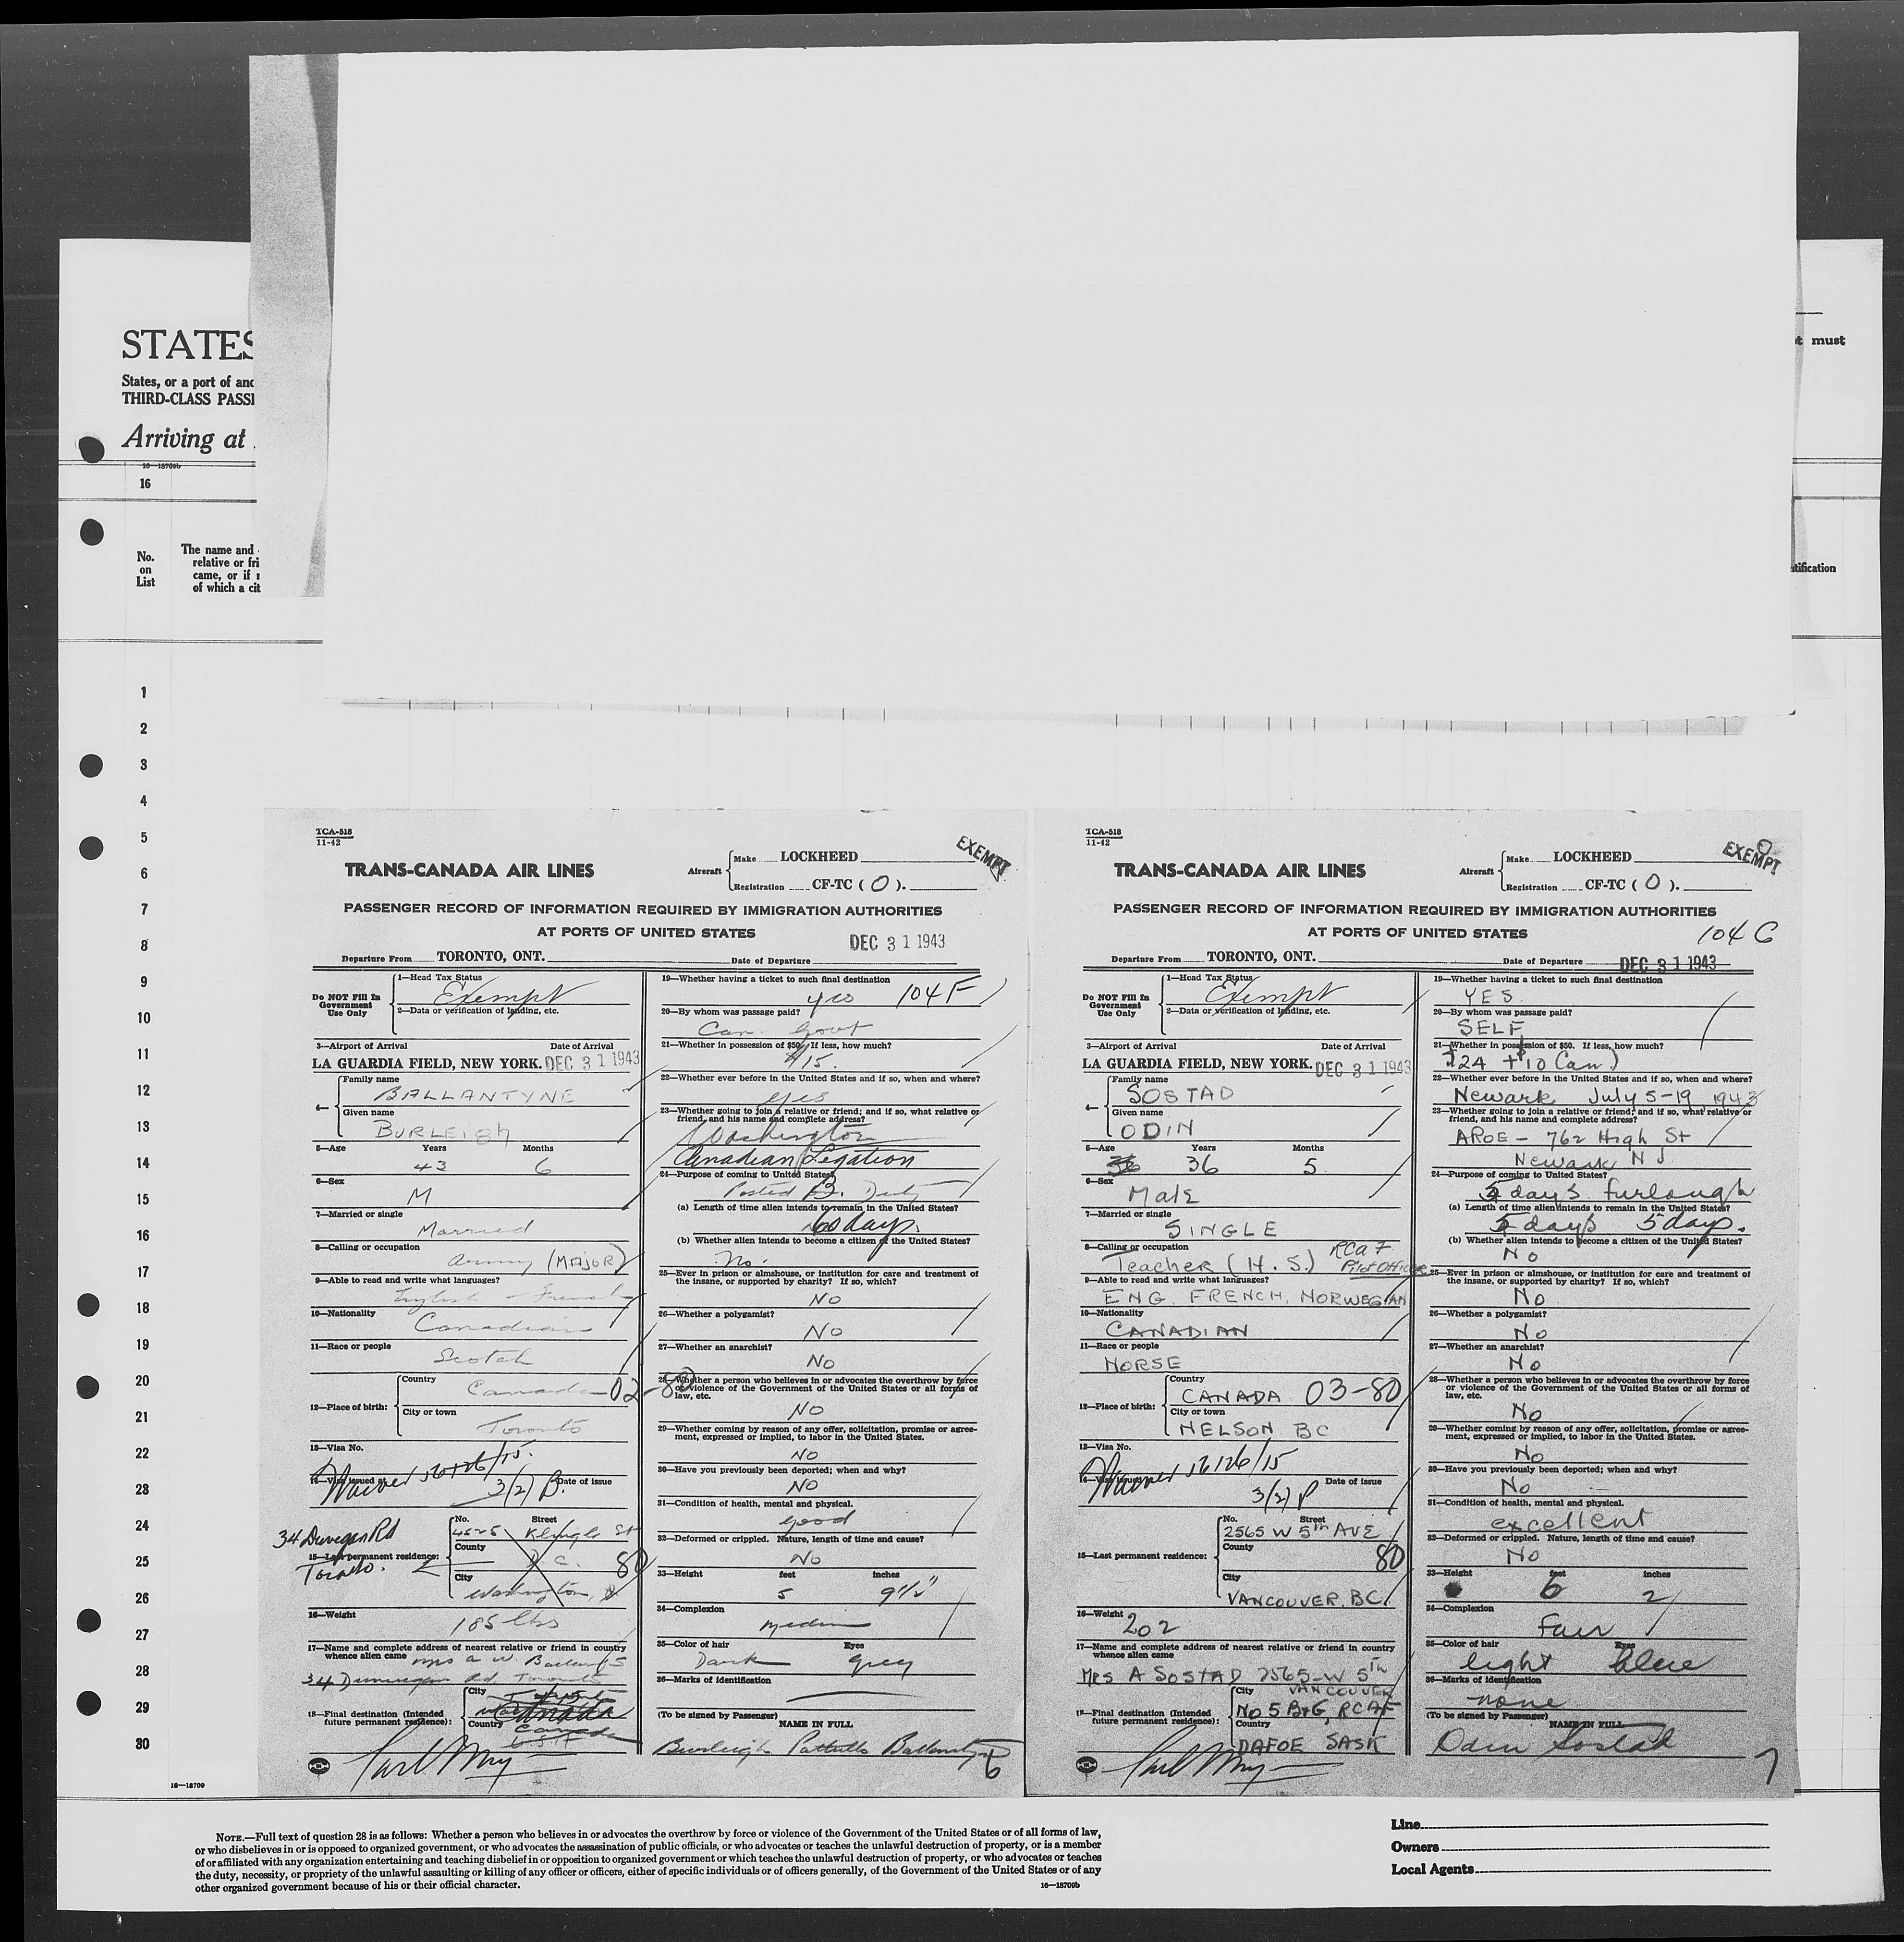 STATES
States, or a port of
THIRD-CLASS
Arriving at
16—18709b
16
No.
on
List
The name and
relative or
came, or if
of which a
must
1
2
3
4
5
6
7
8
9
10
11
12
13
14
15
16
17
18
19
20
21
22
23
24
25
26
27
28
29
30
16—18709
TCA-518
11-42
TRANS-CANADA AIR LINES
Aircraft
Make LOCKHEED
Registration CF-TC ( O ).
EXEMPT
PASSENGER RECORD OF INFORMATION REQUIRED BY IMMIGRATION AUTHORITIES
AT PORTS OF UNITED STATES
DEC 31 1943
Departure From TORONTO, ONT. Date of Departure
Do NOT Fill In
Government
Use Only
1—Head Tax Status
Exempt
2—Data or verification of landing, etc.
3—Airport of Arrival Date of Arrival
LA GUARDIA FIELD, NEW YORK. DEC 31 1943
4—
Family name
BALLANTYNE
Given name
BURLEIGH
5—Age Years Months
43 6
6—Sex
M
7—Married or single
Married
8—Calling or occupation
Army (MAJOR)
9—Able to read and write what languages?
English - French
10—Nationality
Canadian
11—Race or people
Scotch
12—Place of birth:
Country
Canada 02-80
City or town
Toronto
13—Visa No.
Waived 56126/15.
14—Visa issued at Date of issue
3/2) B.
34 Dunvegan Rd
Toronto.
15—Last permanent residence:
No. Street
4525 Klingle St
County
D.C. 80
City
Washington, D
16—Weight
185 lbs
17—Name and complete address of nearest relative or friend in country
whence alien came Mrs A W.
34 Dunvegan Rd. Toronto
18—Final destination (Intended
future permanent residence):
City
Canada
Country
Canada
19—Whether having a ticket to such final destination
yes 104 F
20—By whom was passage paid?
Can. Govt
21—Whether in possession of $50. If less, how much?
$15.
22—Whether ever before in the United States and if so, when and where?
yes
23—Whether going to join a relative or friend; and if so, what relative or
friend, and his name and complete address?
Washington
Canadian Legation
24—Purpose of coming to United States?
Posted B. Duty
(a) Length of time alien intends to remain in the United States?
60 days.
(b) Whether alien intends to become a citizen of the United States?
No.
25—Ever in prison or almshouse, or institution for care and treatment of
the insane, or supported by charity? If so, which?
NO
26—Whether a polygamist?
NO
27—Whether an anarchist?
NO
28—Whether a person who believes in or advocates the overthrow by force
or violence of the Government of the United States or all forms of
law, etc.
NO
29—Whether coming by reason of any offer, solicitation, promise or agree-
ment, expressed or implied, to labor in the United States.
NO
30—Have you previously been deported; when and why?
NO
31—Condition of health, mental and physical.
good
32—Deformed or crippled. Nature, length of time and cause?
NO
33—Height feet inches
5 9½"
34—Complexion
medium
35—Color of hair Eyes
Dark grey
36—Marks of identification
(To be signed by Passenger)
NAME IN FULL
Burleigh Pattullo Ballantyne
6
TCA-518
11-42
TRANS-CANADA AIR LINES
Aircraft
Make LOCKHEED
Registration CF-TC ( O ).
EXEMPT
PASSENGER RECORD OF INFORMATION REQUIRED BY IMMIGRATION AUTHORITIES
AT PORTS OF UNITED STATES
104 G
Departure From TORONTO, ONT. Date of Departure DEC 31 1943
Do NOT Fill In
Government
Use Only
1—Head Tax Status
Exempt
2—Data or verification of landing, etc.
3—Airport of Arrival Date of Arrival
LA GUARDIA FIELD, NEW YORK. DEC 31 1943
4—
Family name
SOSTAD
Given name
ODIN
5—Age Years Months
36 36 5
6—Sex
Male
7—Married or single
SINGLE
8—Calling or occupation RCAF
Teacher (H.S.) Pilot Officer
9—Able to read and write what languages?
ENG. FRENCH, NORWEGIAN
10—Nationality
CANADIAN
11—Race or people
NORSE
12—Place of birth:
Country
CANADA 03-80
City or town
NELSON BC
13—Visa No.
Waived 56126/15
Date of issue
3/2) P
15—Last permanent residence:
No. Street
2565 W 5th AVE
County
80
City
VANCOUVER, BC
16—Weight
202
17—Name and complete address of nearest relative or friend in country
whence alien came
Mrs A SOSTAD 2565-W 5th
VANCOUVER
18—Final destination (Intended
future permanent residence):
City
No 5 B+G, RCAF
Country
DAFOE SASK
19—Whether having a ticket to such final destination
YES
20—By whom was passage paid?
SELF
21—Whether in possession of $50. If less, how much?
$24 + $10 (Can)
22—Whether ever before in the United States and if so, when and where?
Newark July 5-19, 1943
23—Whether going to join a relative or friend; and if so, what relative or
friend, and his name and complete address?
AROE - 762 High St
Newark NJ
24—Purpose of coming to United States?
5 days furlough
(a) Length of time alien intends to remain in the United States?
5 days 5 days.
(b) Whether alien intends to become a citizen of the United States?
No
25—Ever in prison or almshouse, or institution for care and treatment of
the insane, or supported by charity? If so, which?
No
26—Whether a polygamist?
No
27—Whether an anarchist?
No
28—Whether a person who believes in or advocates the overthrow by force
or violence of the Government of the United States or all forms of
law, etc.
No
29—Whether coming by reason of any offer, solicitation, promise or agree-
ment, expressed or implied, to labor in the United States.
No
30—Have you previously been deported; when and why?
No
31—Condition of health, mental and physical.
excellent
32—Deformed or crippled. Nature, length of time and cause?
No
33—Height feet inches
6 2
34—Complexion
Fair
35—Color of hair Eyes
light blue
36—Marks of identification
none
(To be signed by Passenger)
NAME IN FULL
Odin Sostad
7
NOTE.—Full text of question 28 is as follows: Whether a person who believes in or advocates the overthrow by force or violence of the Government of the United States or of all forms of law,
or who disbelieves in or is opposed to organized government, or who advocates the assassination of public officials, or who advocates or teaches the unlawful destruction of property, or is a member
of or affiliated with any organization entertaining and teaching disbelief in or opposition to organized government or which teaches the unlawful destruction of property, or who advocates or teaches
the duty, necessity, or propriety of the unlawful assaulting or killing of any officer or officers, either of specific individuals or of officers generally, of the Government of the United States or of any
other organized government because of his or their official character.
16—18709b
Line
Owners
Local Agents